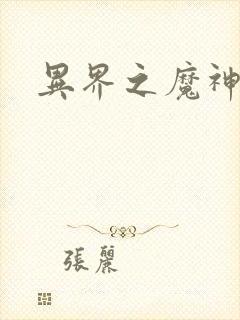 異界之魔神
張麗